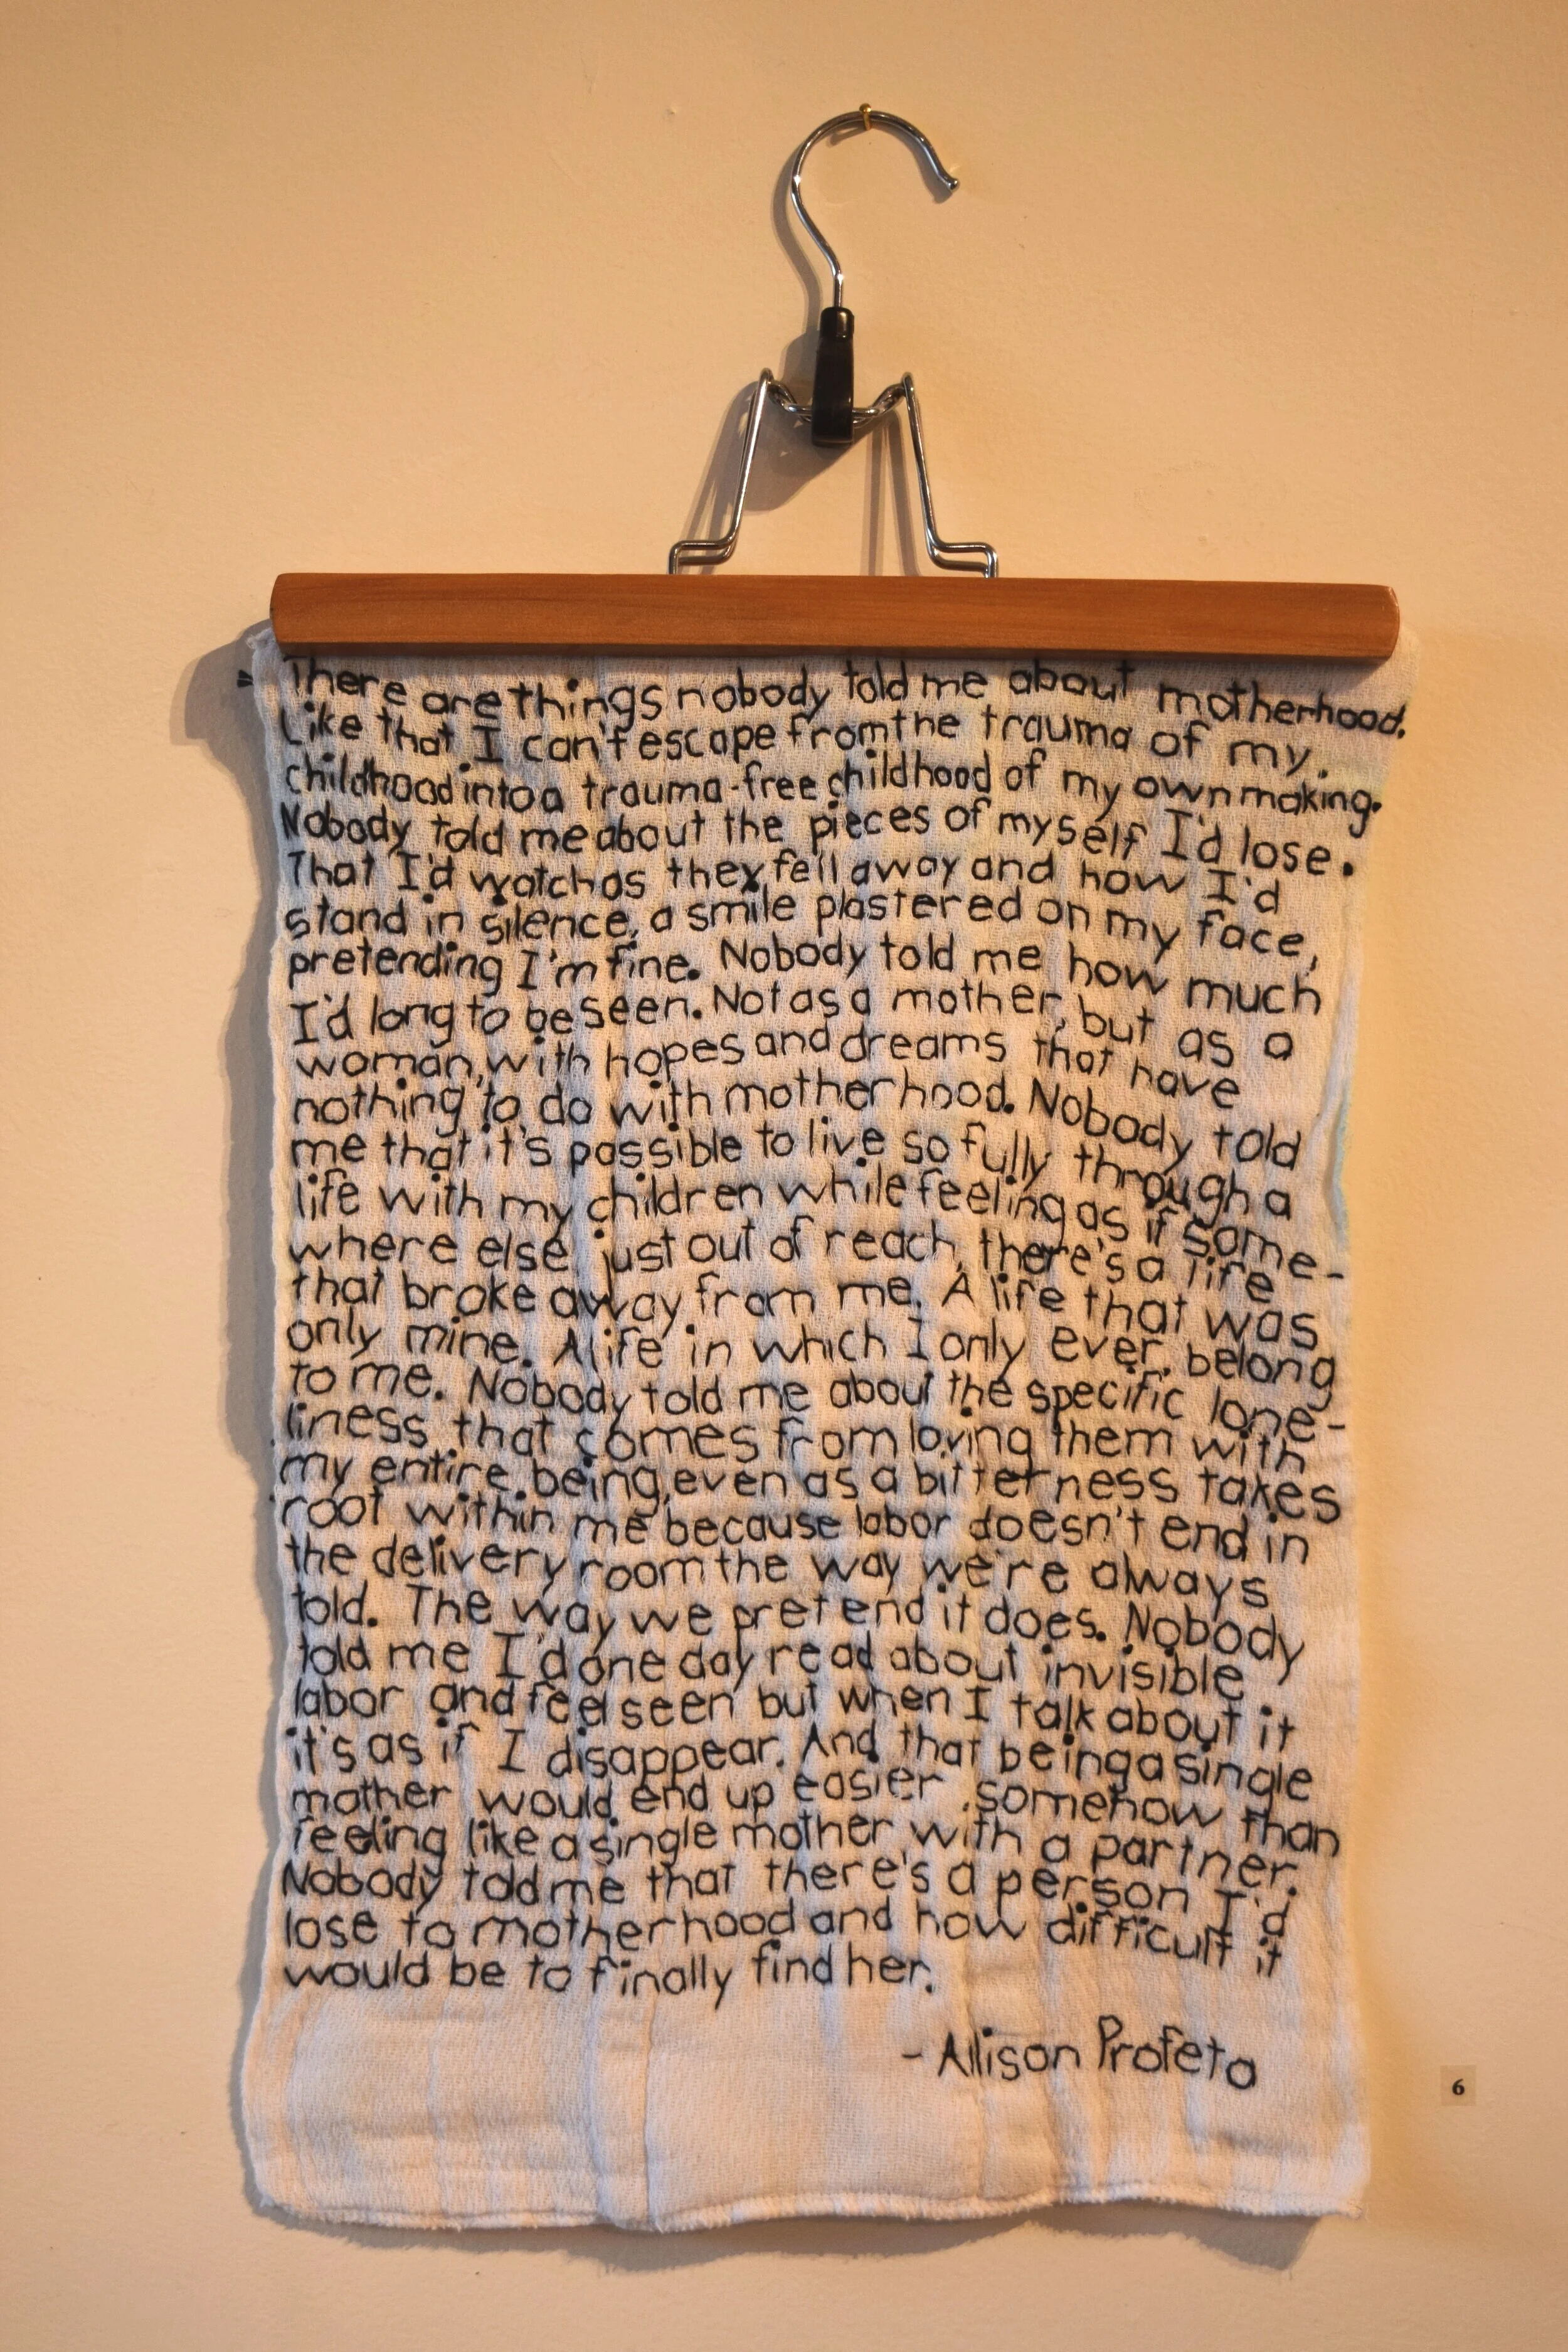 There are things nobody told me about motherhood.
Like that I can't escape from the trauma of my
childhood into a trauma-free childhood of my own making.
Nobody told me about the pieces of myself I'd lose.
That I'd watch as they fell away and how I'd
stand in silence, a smile plastered on my face,
pretending I'm fine. Nobody told me how much
I'd long to be seen. Not as a mother, but as a
woman, with hopes and dreams that have
nothing to do with motherhood. Nobody told
me that it's possible to live so fully through a
life with my children while feeling as if some-
where else, just out of reach, there's a life
that broke away from me. A life that was
only mine. A life in which I only ever belong
to me. Nobody told me about the specific lone-
liness that comes from loving them with
my entire being, even as a bitterness takes
root within me because labor doesn't end in
the delivery room the way we're always
told. The way we pretend it does. Nobody
told me I'd one day read about invisible
labor and feel seen but when I talk about it
it's as if I disappear. And that being a single
mother would end up easier somehow than
feeling like a single mother with a partner.
Nobody told me that there's a person I'd
lose to motherhood and how difficult it
would be to finally find her.
- Allison Profeta
6